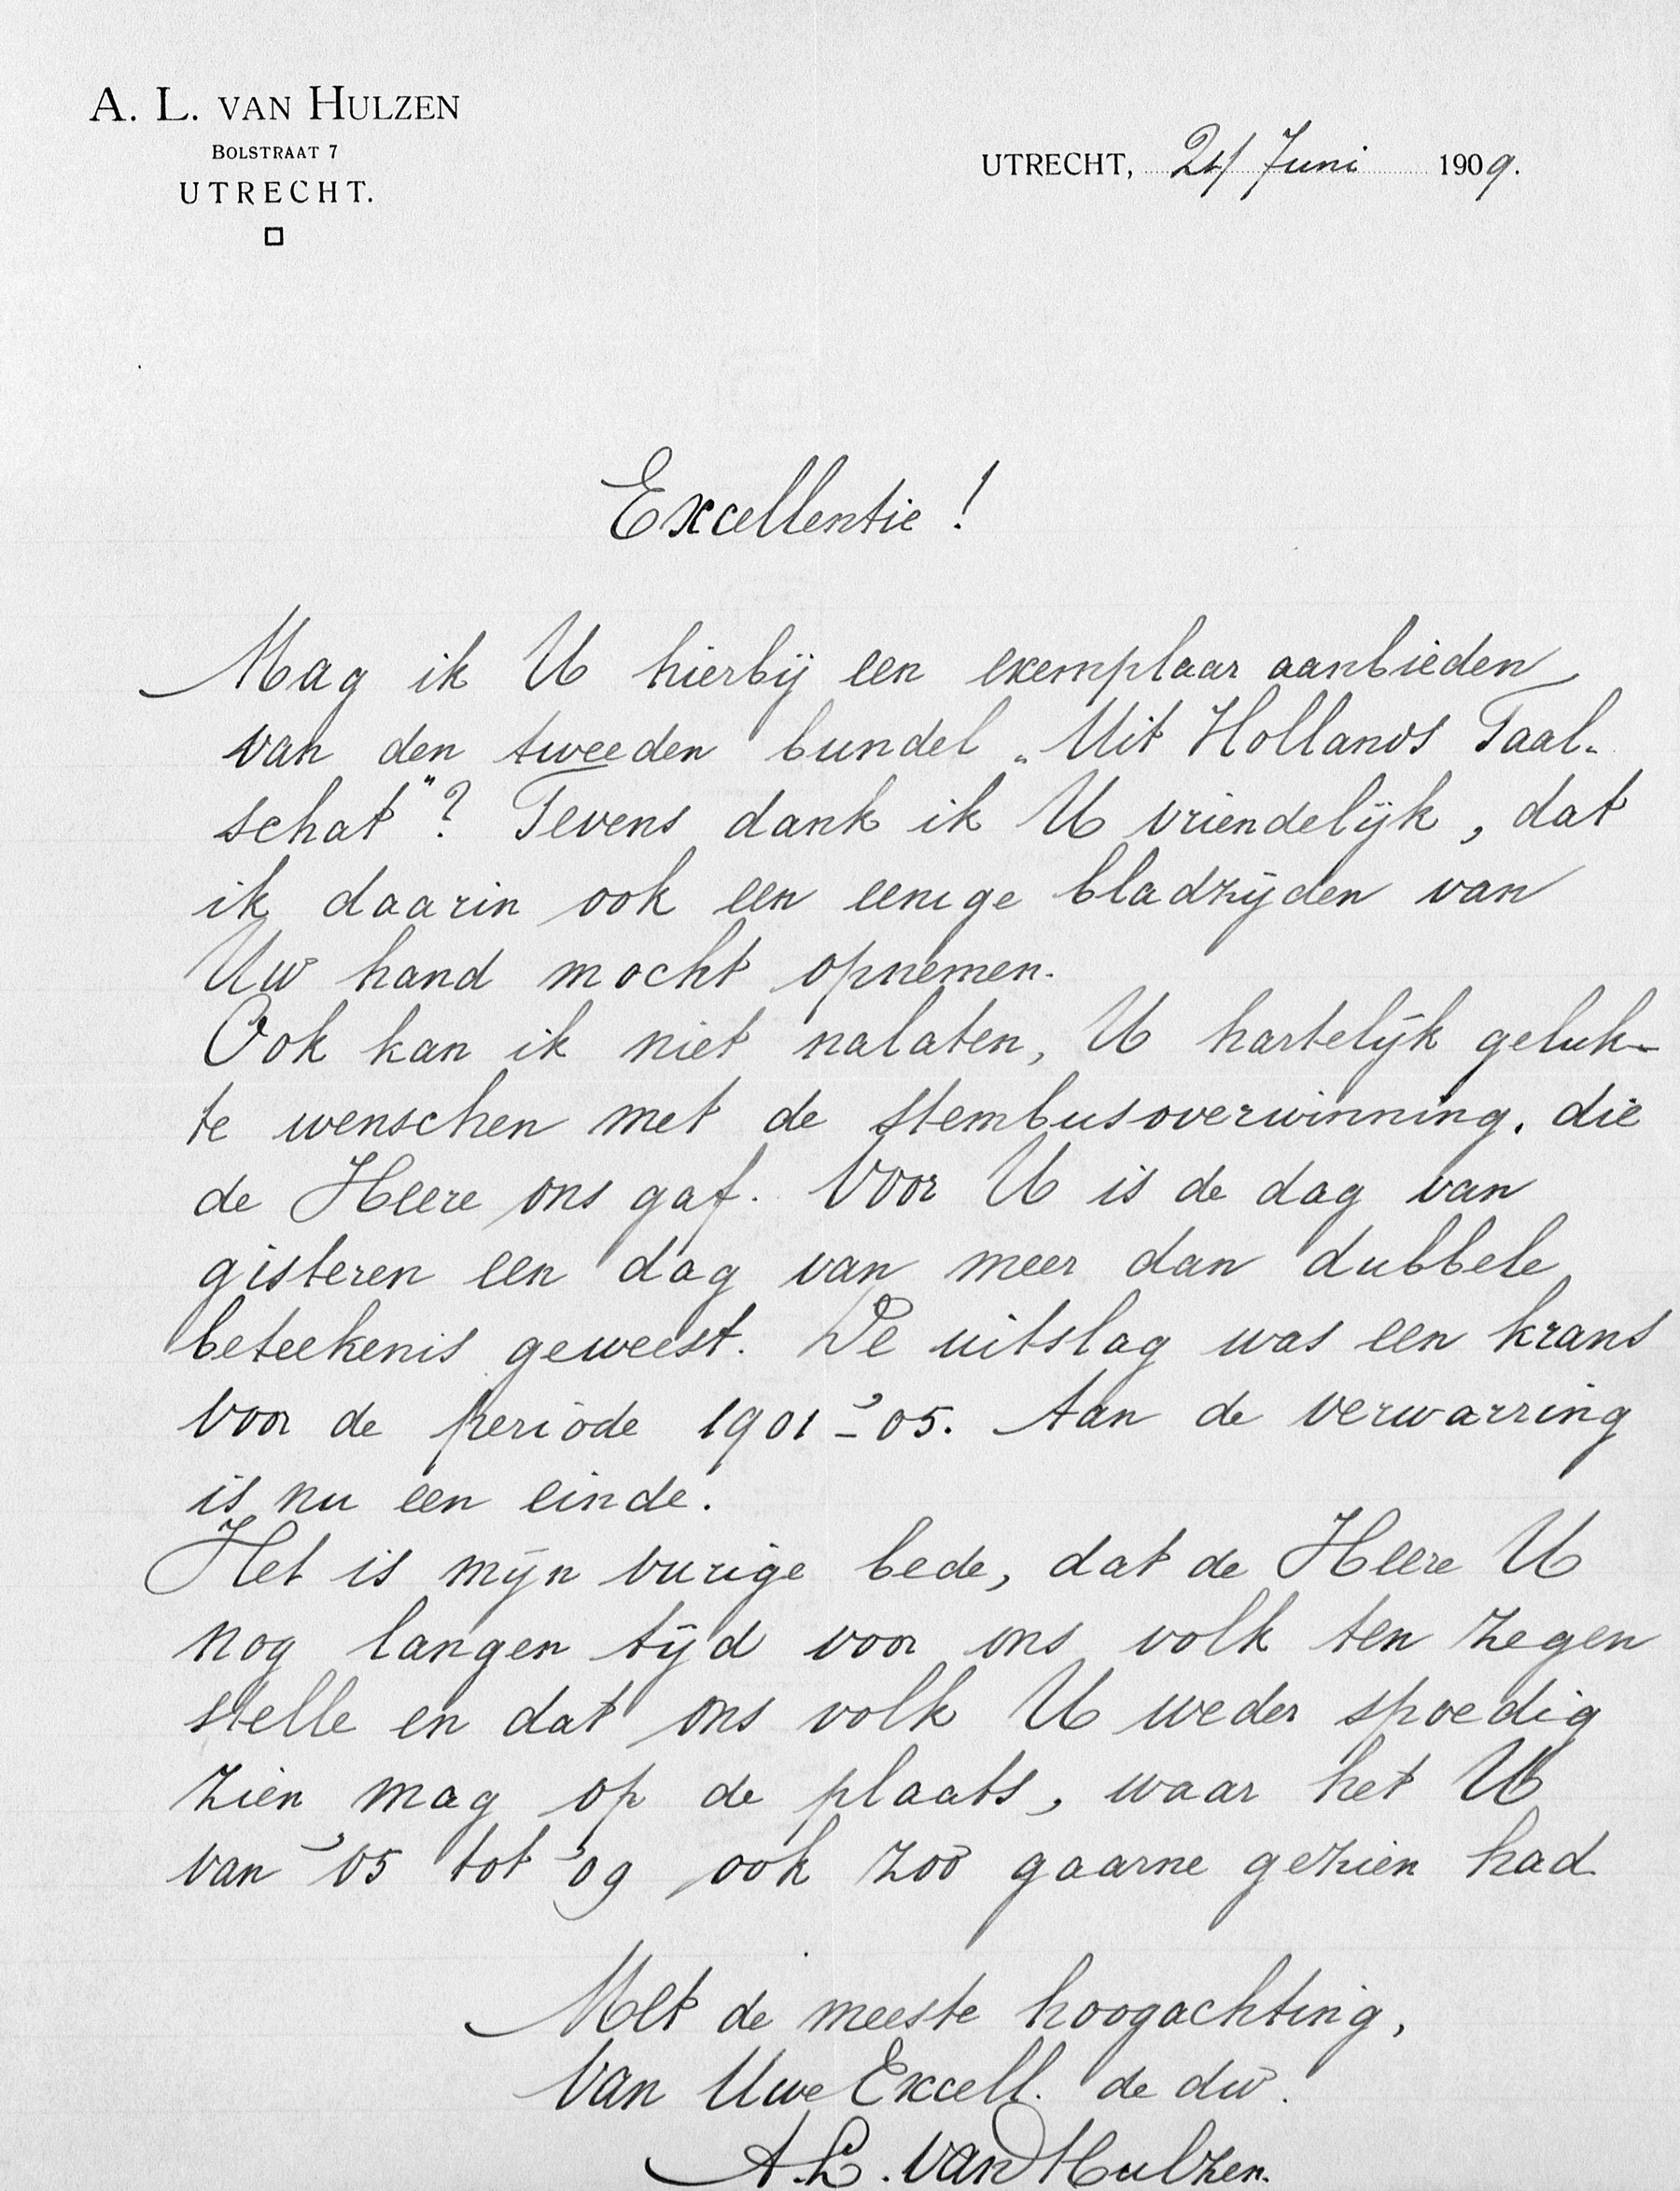 A. L. VAN HULZEN
BOLSTRAAT 7
UTRECHT.
UTRECHT, 24 Juni 1909.
Excellentie !
Mag ik U hierbij een exemplaar aanbieden
van den tweeden bundel „Uit Hollands Taal-
schat"? Tevens dank ik U vriendelijk, dat
ik daarin ook een eenige bladzijden van
Uw hand mocht opnemen.
Ook kan ik niet nalaten, U hartelijk geluk-
te wenschen met de stembusoverwinning, die
de Heere ons gaf. Voor U is de dag van
gisteren een dag van meer dan dubbele
beteekenis geweest. De uitslag was een krans
voor de periode 1901-'05. Aan de verwarring
is nu een einde.
Het is mijn vurige bede, dat de Heere U
nog langen tijd voor ons volk ten zegen
stelle en dat ons volk U weder spoedig
zien mag op de plaats, waar het U
van '05 tot '09 ook zoo gaarne gezien had
Met de meeste hoogachting,
Van Uwe Excell. de dw.
A. L. van Hulzen.